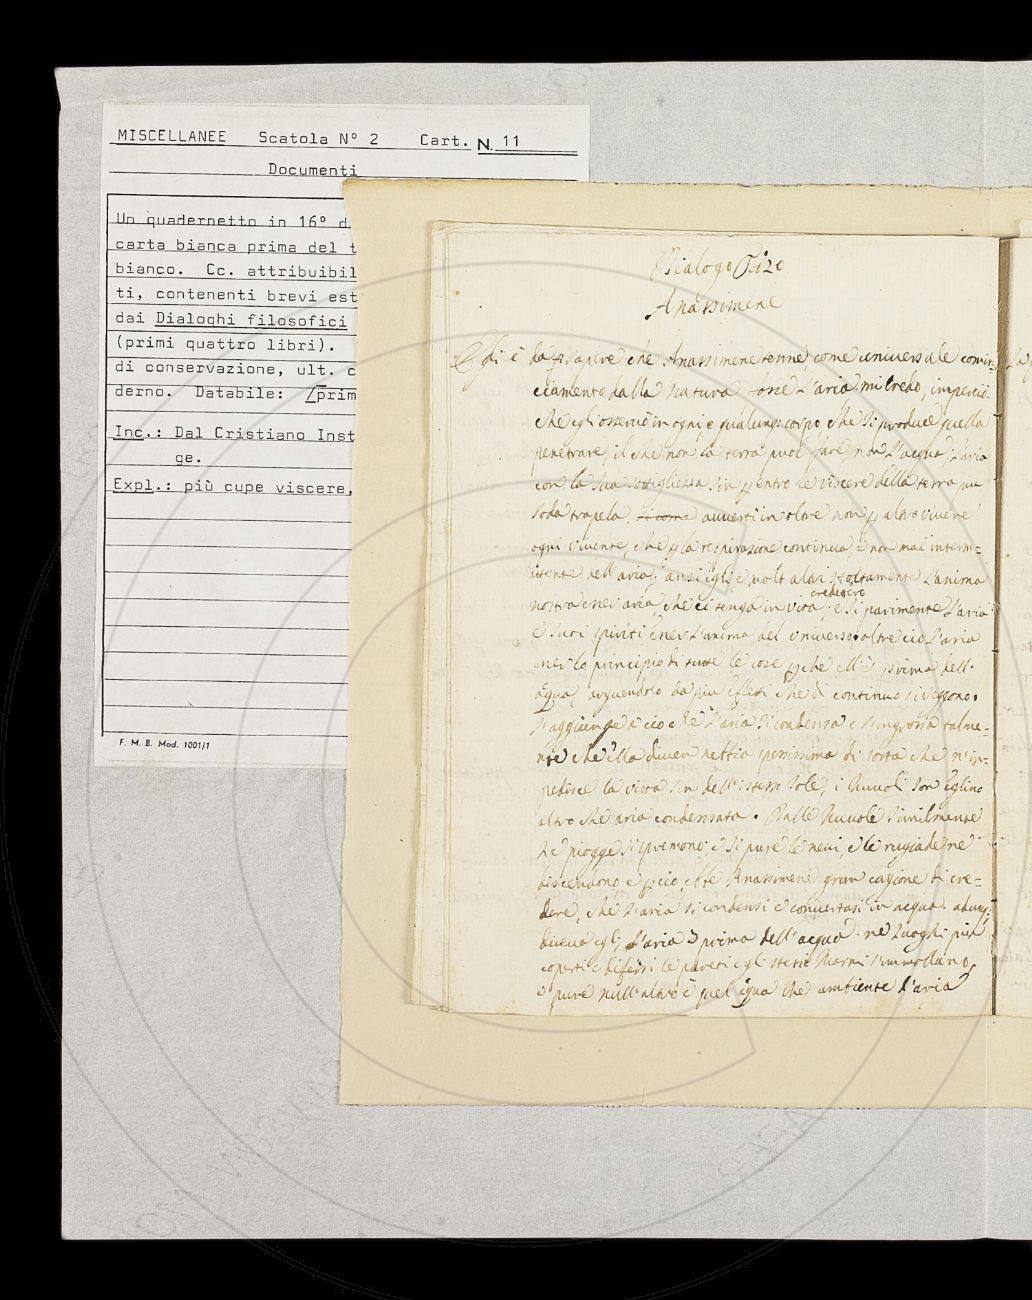 MISCELLANEE Scatola N° 2 Cart. N. 11
Documenti
Un quadernetto in 16° d
carta bianca prima del t
bianco. Cc. attribuibil
ti, contenenti brevi est
dai Dialoghi filosofici
(primi quattro libri).
di conservazione, ult. c
derno. Databile: /prim
Inc.: Dal Cristiano Inst
ge.
Expl.: più cupe viscere,
F. M. B. Mod. 1001/1
Dialogo
Anassimene
Egli è da sapere che Anassimene tenne, come universale comin-
ciamento dalla Natura fosse l'aria. mi credo, imperciò
che egli osservò in ogni, e qualunq: corpo che si produce quella
penetrare, il che non la terra puol fare, non l'acqua; l'aria
con la sua sottigliezza sin entro le viscere della terra piu
soda trapela. si come avvertì in oltre non p altro vivere
ogni vivente, che p la respirazione continua, e non mai interm-
itente dell'aria; anzi egli, e molt altri stoltamente l'anima
credevero
nostra esser aria, che ci tenga in vita. e sì parimente l'aria
e suoi spiriti esser l'anima del universo: oltre ciò l'aria
esser lo principio di tutte le cose p che ell'è prima dell'
aqua, arguendolo da piu effetti che di continuo si veggono.
S'aggiunge a ciò che l'aria si condensa e s'ingrossa talme-
nte che ella diven nebbia spessissima di sorta che n'im-
pedisce la vista sin dell'istesso sole, i Nuvoli son eglino
altro che aria condensata. Dalle Nuvole similmente
le piogge si spremono e sì pure le nevi, e le rugiade ne
discendono e p ciò ebbe Anassimene gran cagione di cre-
dere, che l'aria si condensi e convertasi in acqua. adunq:
diceva egli, l'aria è prima dell'acqua. ne luoghi più
coperti e difesi le pareti e gli stessi Marmi s'immollano,
e pure null'altro è quel aqua che ambiente l'aria